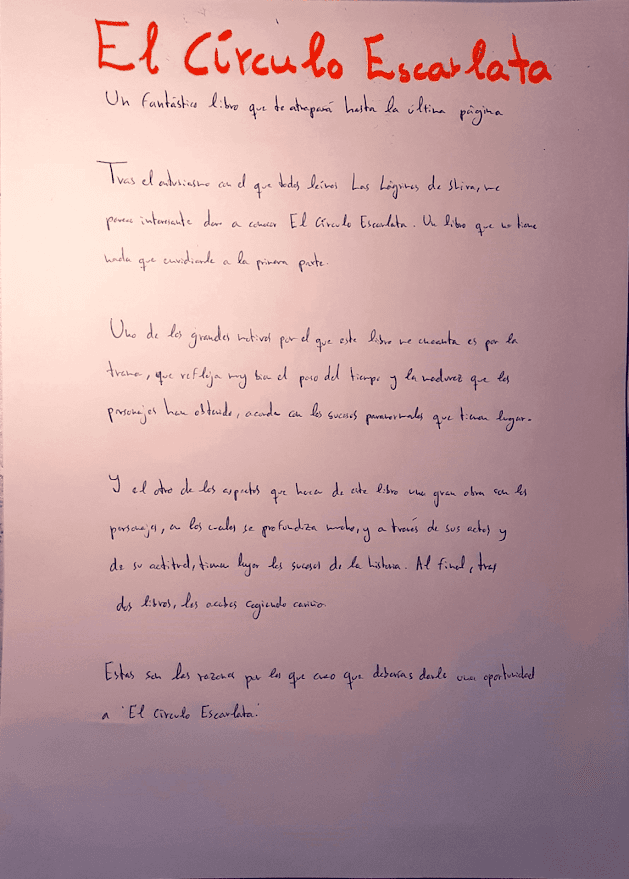 El Círculo Escarlata
Un fantástico libro que te atrapará hasta la última página
Tras el entusiasmo con el que todos leímos Las Lágrimas de Shiva, me
parece interesante daros a conocer El Círculo Escarlata. Un libro que no tiene
nada que envidiarle a la primera parte.
Uno de los grandes motivos por el que este libro me encanta es por la
trama, que refleja muy bien el paso del tiempo y la madurez que los
personajes han obtenido, acorde con los sucesos paranormales que tienen lugar.
Y el otro de los aspectos que hacen de este libro una gran obra son los
personajes, en los cuales se profundiza mucho, y a través de sus actos y
de su actitud, tienen lugar los sucesos de la historia. Al final, tras
dos libros, les acabas cogiendo cariño.
Estas son las razones por las que creo que deberías darle una oportunidad
a 'El Círculo Escarlata'.